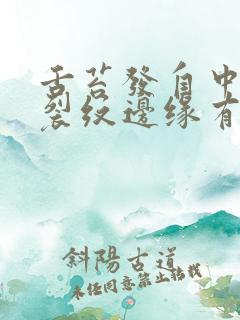 舌苔發白中
裂紋邊緣有
斜陽古道
未經同意禁止轉載